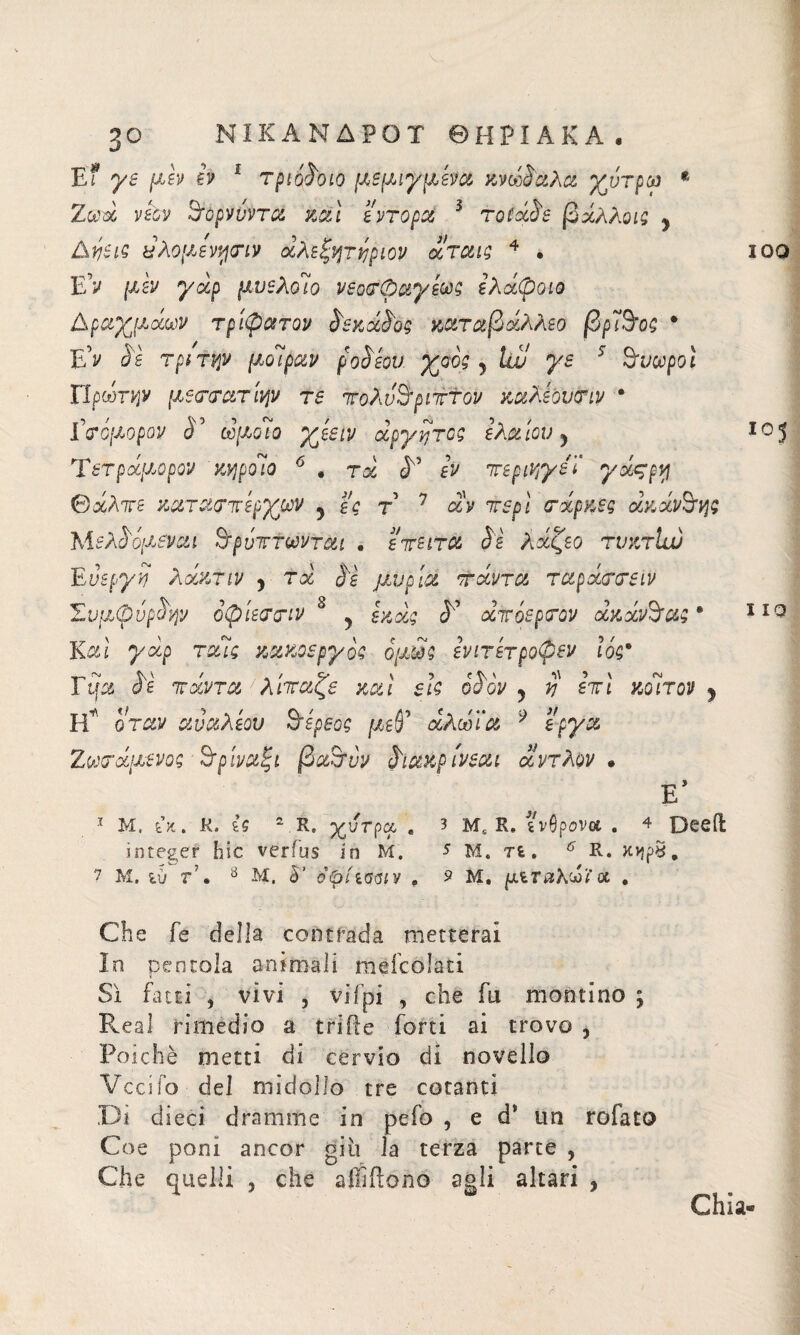 30 ΝΙΚΑΝΔΡΟΥ ΘΗΡΙΑΚΑ.
Εἴ γε μὲν ἐν ¹ τριόδοιο μεμιγμένα κνώδαλα χύτρῳ ²
Ζωὰ νέον θορνύντα καὶ ἔντορα ³ τοιάδε βάλλοις,
Δήεις ȣ̓λομένῃσιν ἀλεξητήριον ἄταις ⁴. 100
Ε᾽ν μὲν γὰρ μυελοῖο νεοσφαγέως ἐλάφοιο
Δραχμάων τρίφατον δεκάδος καταβάλλεο βρῖθος·
Ε᾽ν δὲ τρίτην μοῖραν ῥοδέου χοὸς, ἣν γε ⁵ θυωροὶ
Πρώτην μεσσατίην τε πολύθριπτον καλέουσιν·
Γσόμορον δ᾽ ὠμοῖο χέειν ἀργῆτος ἐλαίου, 105
Τετράμορον κηροῖο ⁶. τὰ δ᾽ ἐν περιηγέϊ γάςρῃ
Θάλπε κατασπέρχων, ἔς τ᾽ ⁷ ἂν περὶ σάρκες ἀκάνθης
Μελδόμεναι θρύπτωνται. ἔπειτα δὲ λάζεο τυκτὴν
Εὐεργῆ λάκτιν, τὰ δὲ μυρία πάντα ταράσσειν
Συμφύρδην ὀφίεσσιν ⁸, ἑκὰς δ᾽ ἀπόερσον ἀκάνθας· 110
Καὶ γὰρ ταῖς κακοεργὸς ὁμῶς ἐνιτέτροφεν ἰός·
Γυῖα δὲ πάντα λίπαζε καὶ εἰς ὁδὸν, ἢ ἐπὶ κοῖτον,
Η῍ ὅταν αὐαλέου θέρεος μεθ᾽ ἀλώϊα ⁹ ἔργα
Ζωσάμενος θρίναξι βαθὺν διακρίνεαι ἄντλον.
Ε᾽
¹ M. ἐκ. R. ἐς ² R. χύτρα. ³ M. R. ἔνθρονα. ⁴ Deest
integer hic versus in M. ⁵ M. τε. ⁶ R. κηρȣ͂.
⁷ M. εὖ τ᾽. ⁸ M. δ᾽ ὀφίεσσιν. ⁹ M. μεταλώϊα.
Che se della contrada metterai
In pentola animali mescolati
Sì fatti, vivi, vispi, che fu montino;
Real rimedio a triste sorti ai trovo,
Poichè metti di cervio di novello
Vcciso del midollo tre cotanti
Di dieci dramme in peso, e d' un rosato
Coe poni ancor giù la terza parte,
Che quelli, che assistono agli altari,
Chia-